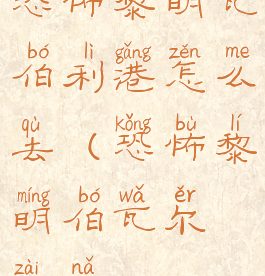 恐怖黎明瓦
bó lì gǎng zěn me
伯利港怎么
qù kǒng bù lí
去（恐怖黎
míng bó wǎ ěr
明伯瓦尔
zài nǎ